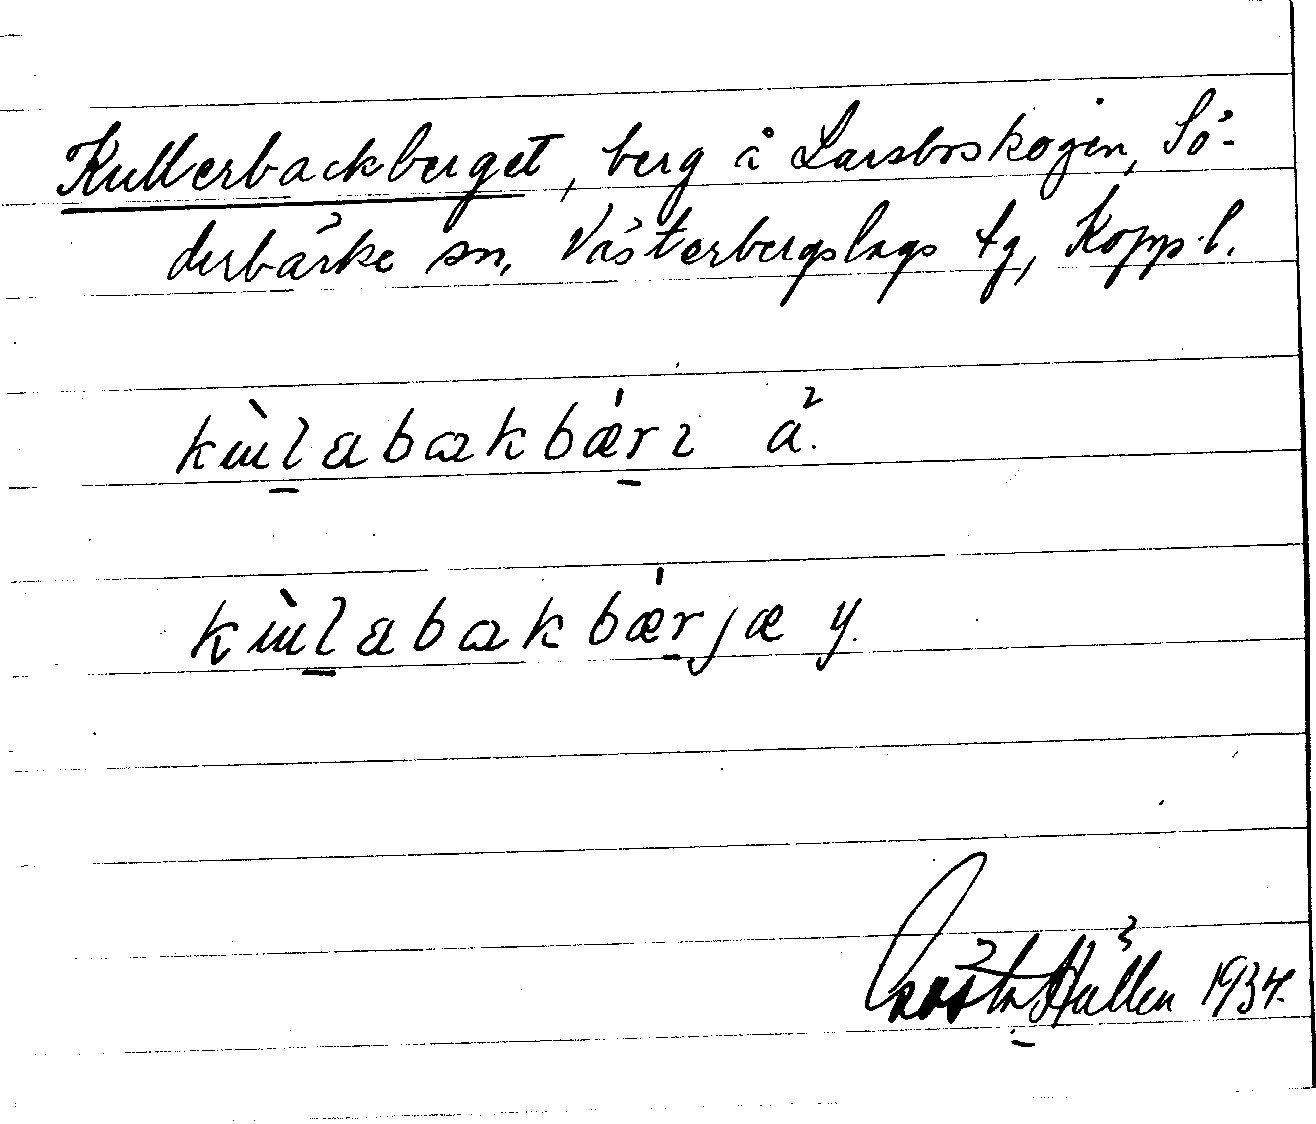 Kullerbackberget, berg å Larsboskogen, Sö-
derbärke sn, Västerbergslags tg, Kopp.l.
kùlabakbǽrɩ ä.
kùlabakbǽrjæ y.
Gösta Hallén 1934.